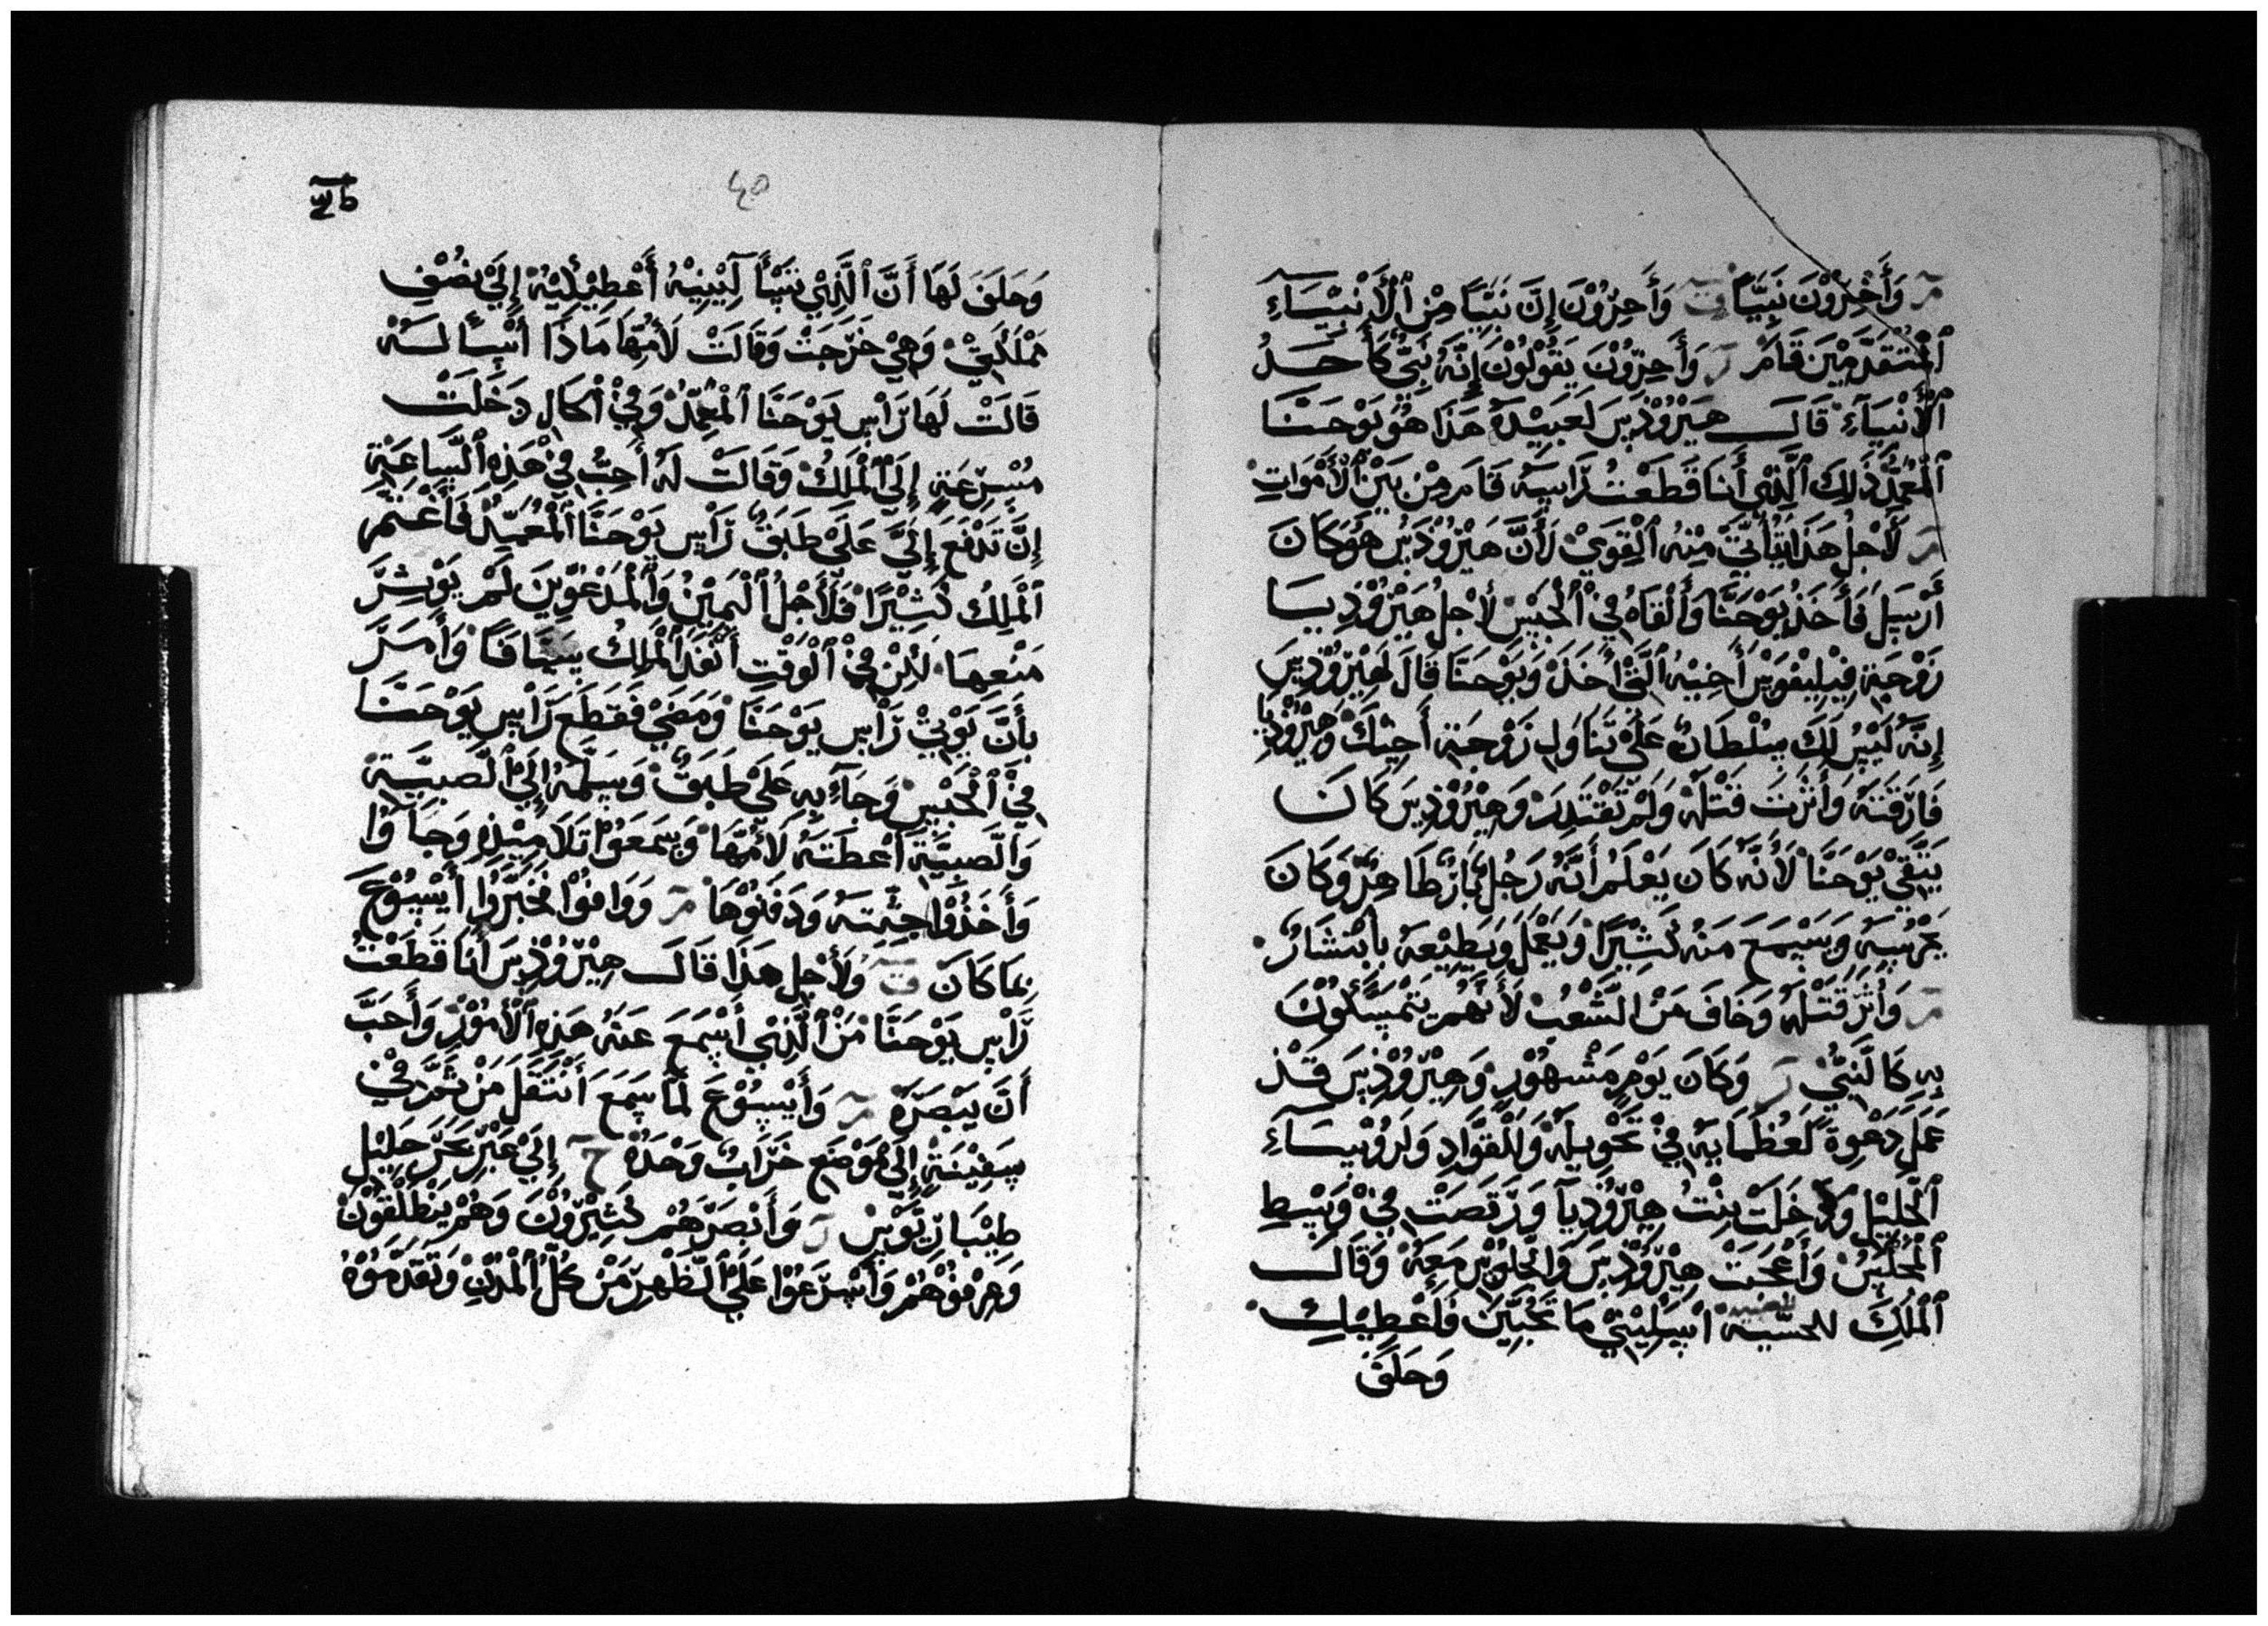 مر وَأَخِرُوْنَ نَبِيًّا ق وَأَخِرُوْنَ إِنَّ نَبِيًّا مِنَ ٱلْأَنْبِيَآءِ
ٱلْمُتَقَدِّمِيْنَ قَامَ ر وَأَخِرُوْنَ يَقُوْلُوْنَ إِنَّهُ نَبِيٌّ كَأَحَدُ
ٱلْأَنْبِيَآءِ قَالَ هِيْرُوْدِسَ لَعَبِيْدِهِ هَذَا هُوَ يَوْحَنَّا
ٱلْمُعَمِّدُ ذَلِكَ ٱلَّذِيْ أَنَا قَطَعْتُ رَاسِهِ قَامَ مِنْ بَيْنِ ٱلْأَمْوَاتِ
مر لَأَجْلِ هَذَا تَأْتِيْ مِنْهُ ٱلْقِوَيْ لَأَنَّ هِيْرُوْدِسَ هُوَ كَانَ
أَرْسَلَ فَأَخَذَ يَوْحَنَّا وَأَلْقَاهُ فِيْ ٱلْحَبْسِ لِأَجْلِ هِيْرُوْدِيَا
زَوْجَةِ فِيْلِيْفُوسَ أَخِيْهِ ٱلَّتِيْ أَخَذَ وَيَوْحَنَّا قَالَ لَهِيْرُوْدِسَ
إِنَّهُ لَيْسَ لَكَ سُلْطَانٌ عَلَيْ تَنَاوَلِ زَوْجَةِ أَخِيْكَ وَهِيْرُوْدِيَا
فَارَقَتَهُ وَأَثَرَتَ قَتْلَهُ وَلَمْ تَقْتَدِرَ وَهِيْرُوْدِسَ كَانَ
يَتَّقِيْ يَوْحَنَّا لَأَنَّهُ كَانَ يَعْلَمُ أَنَّهُ رَجُلٌ بَارٌ طَاهِرٌ وَكَانَ
يَحْرُسِهُ وَيَسْمَعَ مَنَهُ كَثِيْرًا وَيَعْمَلَ وَيَطِيْعَهُ بِابْتِشَارٌ
مر وَأَثَرَ قَتْلَهُ وَخَافَ مَنَ الشَّعْبُ لَأَنَّهُمْ يَتْمَسَّكُوْنَ
بِهِ كَالنَّبِيْ ر وَكَانَ يَوْمِ مَشْهُوْرٍ وَهِيْرُوْدِسَ قَدْ
عَمَلَ دَعْوَةً لَعُظَمَايِهُ فِيْ تَحْوِيلَهُ وَٱلْقُوَّادِ وَلِرُوْسَآءِ
ٱلْجَلِيْلِ وَدَخَلَتْ بِنْتُ هِيْرُوْدِيَآ وَرَقَصَتْ فِيْ وَسْطِ
ٱلْجُلَاسِ وَأَعْجَبَتْ هِيْرُوْدِسَ وَالْجُلُوْسِ مَعِهُ وَقَالَ
ٱلْمَلِكَ للصبيه اسَلِيْنِيْ مَا تَحُبِّيْنَ فَاعْطِيْكِ
وَحَلَفَ
٤٥
وَحَلَفَ لَهَا أَنَّ ٱلَّذِيْ تَسْأَلِيْنِيْهُ أَعْطِيْكِيْهُ إِلَيْ نِصْفِ
مَمْلَكَتِيْ وَهِيْ خَرَجَتْ وَقَالَتْ لَأُمِّهَا مَاذَا أَسْأَلَهُ
قَالَتْ لَهَا رَاسِ يَوْحَنَّا ٱلْمُعَمِّدُ وَفِيْ اْلحَالِ دَخَلَتْ
مُسْرِعَةٍ إِلَيْ ٱلْمَلِكُ وَقَالَتْ لَهُ أُحِبُّ فِيْ هَذِهِ ٱلسَّاعَةِ
إِنَّ تَدْفَعَ إِلَيَّ عَلَيْ طَبَقٌ رَاسِ يَوْحَنَّا ٱلْمُعَمِّدُ فَأَغْتَمَ
ٱلْمَلِكُ كَثِيْرًا فَلَأَجْلِ ٱلْيَمِيْنِ وَٱلْمَدْعُوِّينَ لَمْ يَوْشِرَ
مَنْعِهَا لَكِنْ فِيْ ٱلْوَقْتِ أَنْفَذَ ٱلْمَلِكُ سَيَّافًا وَأَمَرَ
بِأَنَّ يَوْتِيْ رَاسِ يَوْحَنَّا وَمَضَيْ فَقَطَعَ رَاسِ يَوْحَنَّا
فِيْ ٱلْحَبْسِ وَجَآءَ بِهِ عَلَيْ طَبَقٌ وَسَلَّمَهُ إِلَيْ ٱلصَّبِيَّةِ
وَٱلصَّبِيَّةَ أَعْطَتَهُ لَأُمِّهَا وَسَمَعَوُا تَلَامِيْذِهِ وَجَاَوُا
وَأَخَذُوْا جِثَّتَهُ وَدَفَنُوْهَا مر وَوَافُوْا فَخَبَّرُوْا أَيْسُوْعَ
بِمَا كَانَ ق وَلَأَجْلِ هَذَا قَالَ هِيْرُوْدِسَ أَنَا قَطَعْتُ
رَاسِ يَوْحَنَّا مَنْ ٱلَّذِيْ أَسْمَعَ عَنَهُ هَذِهِ ٱلْأُمُوْرَ وَأَحَبَّ
أَنَّ يَبْصَرَهُ مر وَأَيْسُوْعَ لَمَّا سَمَعَ أَنْتَقَلَ مَنْ ثَمَّ فِيْ
سَفِيْنَةٍ إِلَيْ مَوْضَعِ خَرَابٌ وَحْدَهُ ح إِلَيْ عَبْرِ بَحَرَ جَلِيْلِ
طِيْبَارِيَّوْسَ ر وَأَبْصَرَهُمْ كَثِيْرُوْنَ وَهُمْ يَنْطَلْقُوْنَ
وَعَرِفُوْهُمْ وَأَسْرَعُوْا عَلَيْ ٱلظَّهْرِ مَنْ كُلِّ ٱلْمُدُنِ وَتَقَدَّمُوْهُ